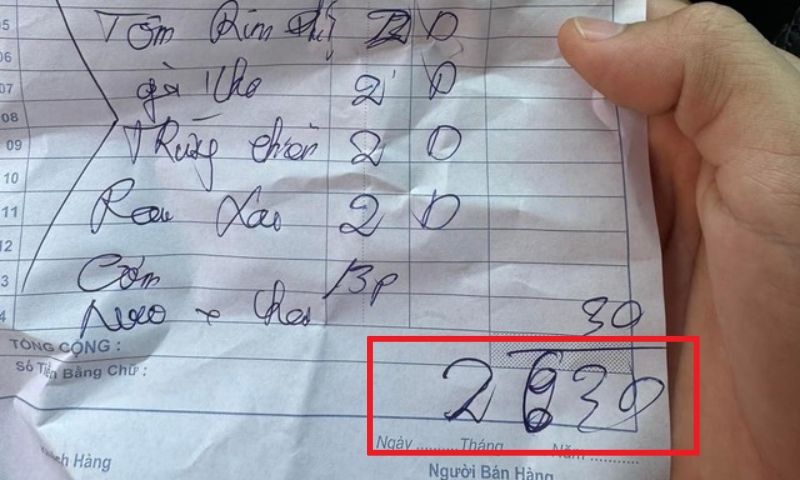 05 Tôm Rim thịt 2 D
06
07 gà kho 2 D
08
09 Trứng chiên 2 D
10
11 Rau Xào 2 D
12
3 Cơm 13p
4 30
TỔNG CỘNG : 2 630
Số Tiền Bằng Chữ :
Ngày ......... Tháng ......... Năm ...........
Khách Hàng Người Bán Hàng